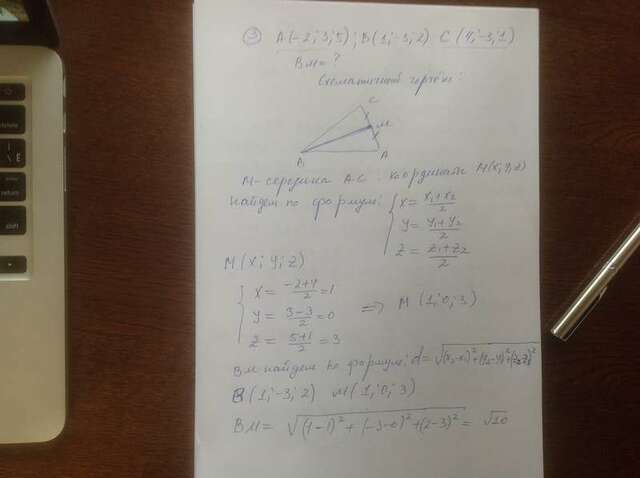 ③ A(-2; 3; 5); B(1; -3; 2) C(4; -3; 1)
BM = ?
Схематичный чертёж:
C
M
A₁ A
M - середина AC: координаты M(x; y; z)
найдем по формуле: { x = (x₁+x₂)/2
y = (y₁+y₂)/2
z = (z₁+z₂)/2
M(x; y; z)
{ x = (-2+4)/2 = 1
y = (3-3)/2 = 0 => M(1; 0; 3)
z = (5+1)/2 = 3
BM найдем по формуле: d = √((x₂-x₁)²+(y₂-y₁)²+(z₂-z₁)²)
B(1; -3; 2) M(1; 0; 3)
BM = √((1-1)² + (-3-0)² + (2-3)²) = √10
return
shift